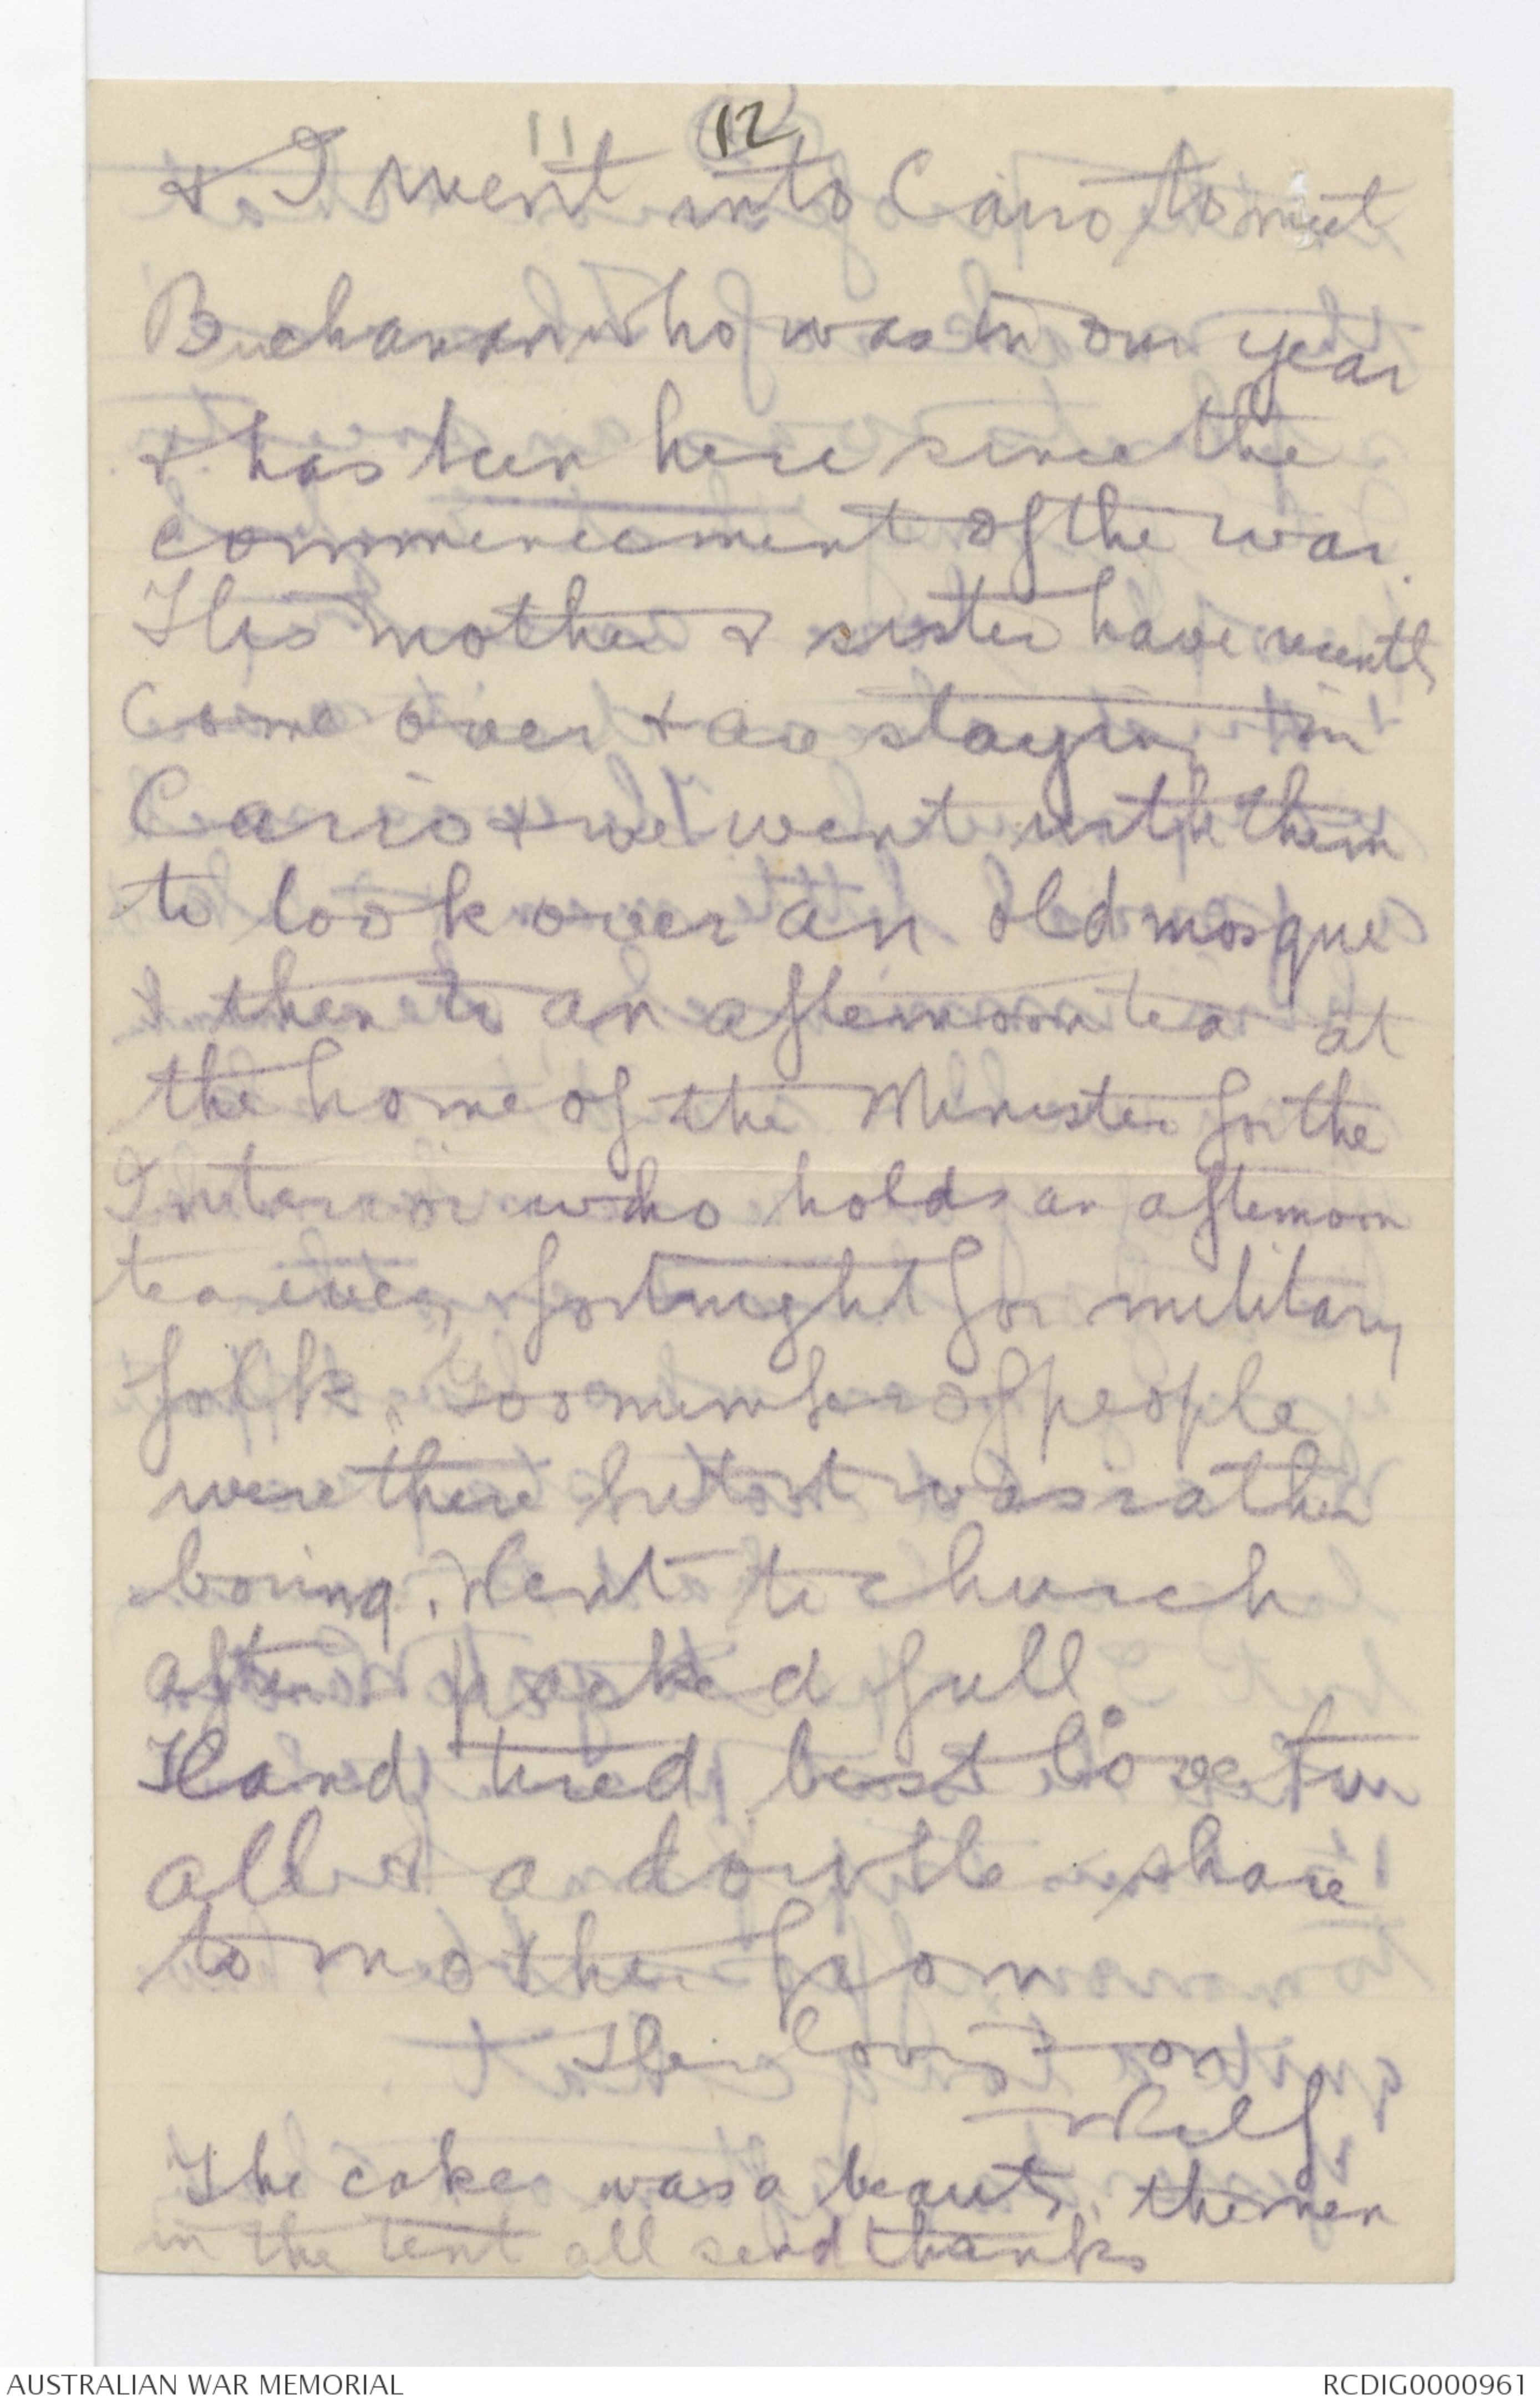 11 12
& I went into Cairo to meet
Buchanan who was in our year
& has been here since the
commencement of the war.
His mother & sister have recently
come over & are staying in
Cairo & we went with them
to look over an old mosque
& then to an afternoon tea at
the home of the Minister for the
Interior who holds an afternoon
tea every fortnight for military
folk. Goo number of people
were there but it was rather
boring. Went to church
after packed full.
Hand tired, best love to
all & a double share
to mother from
Her loving son
Wilf.
The cake was a beauty, the men
in the tent all send thanks
AUSTRALIAN WAR MEMORIAL
RCDIG0000961